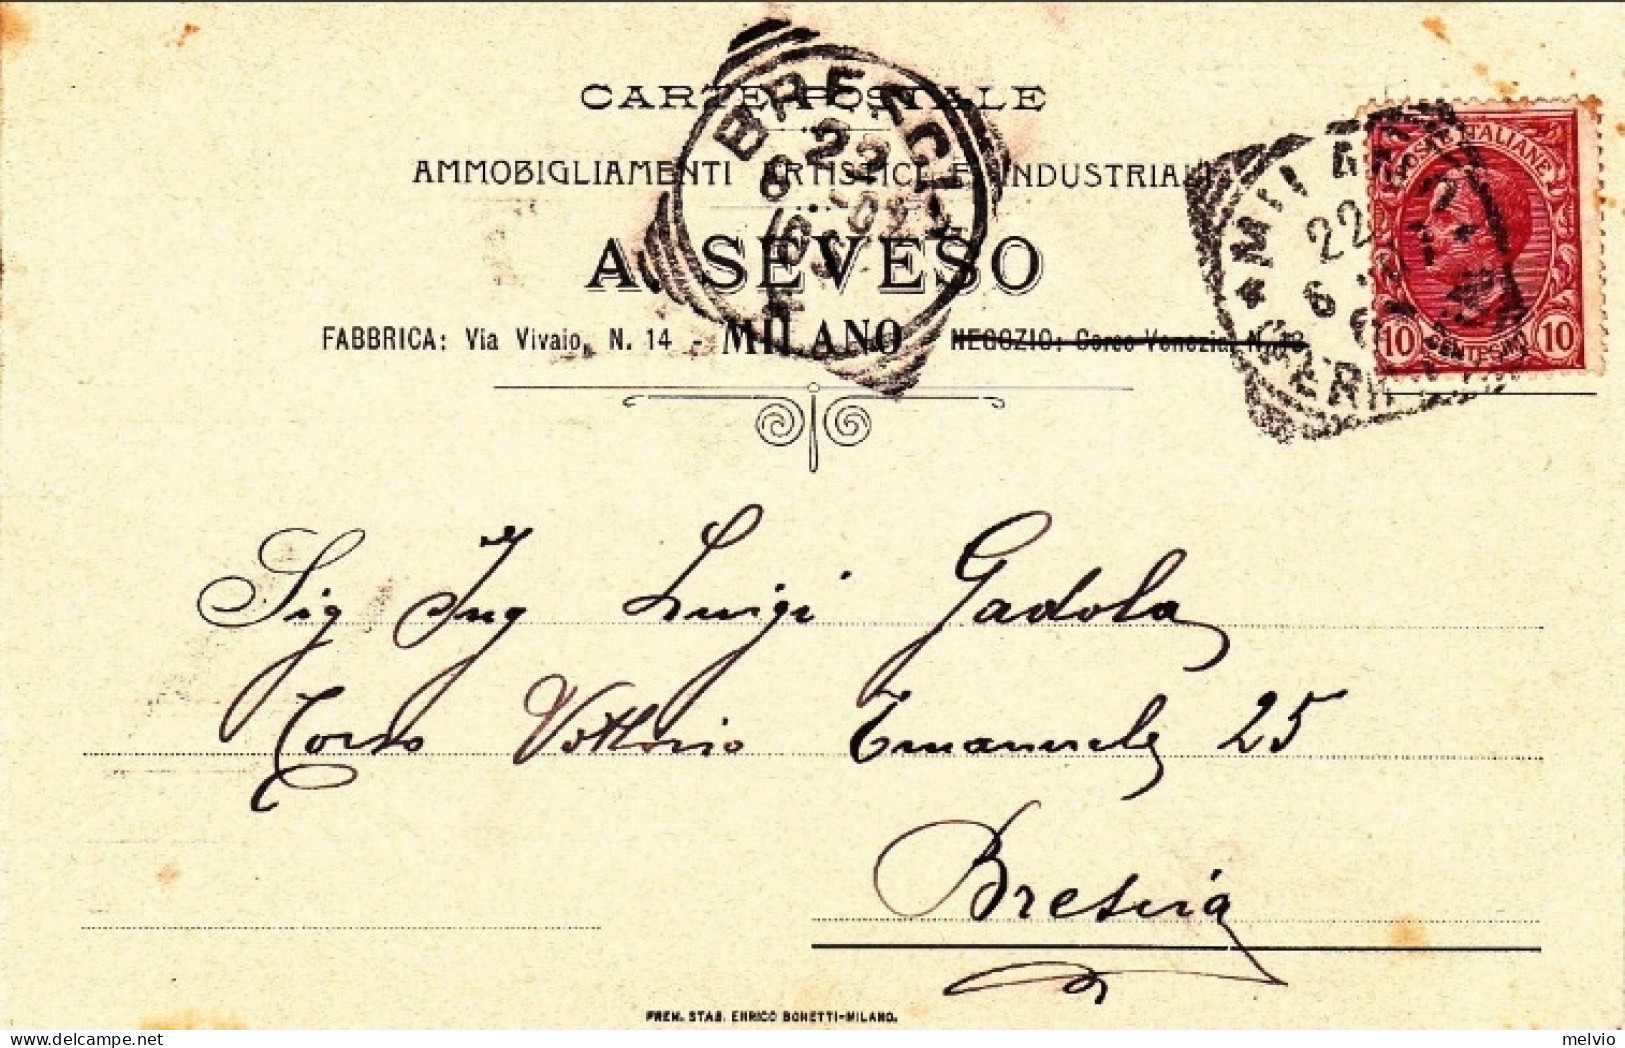 CARTE POSTALE
AMMOBIGLIAMENTI ARTISTICI E INDUSTRIALI
A. SEVESO
FABBRICA: Via Vivaio, N. 14 - MILANO NEGOZIO: Corso Venezia, N. 13
BRESCIA
22
MILANO
22
6
POSTE ITALIANE
10 CENTESIMI 10
Sig Ing Luigi Gadola
Corso Vittorio Emanuele 25
Brescia
PREM. STAB. ENRICO BONETTI-MILANO.
melvio